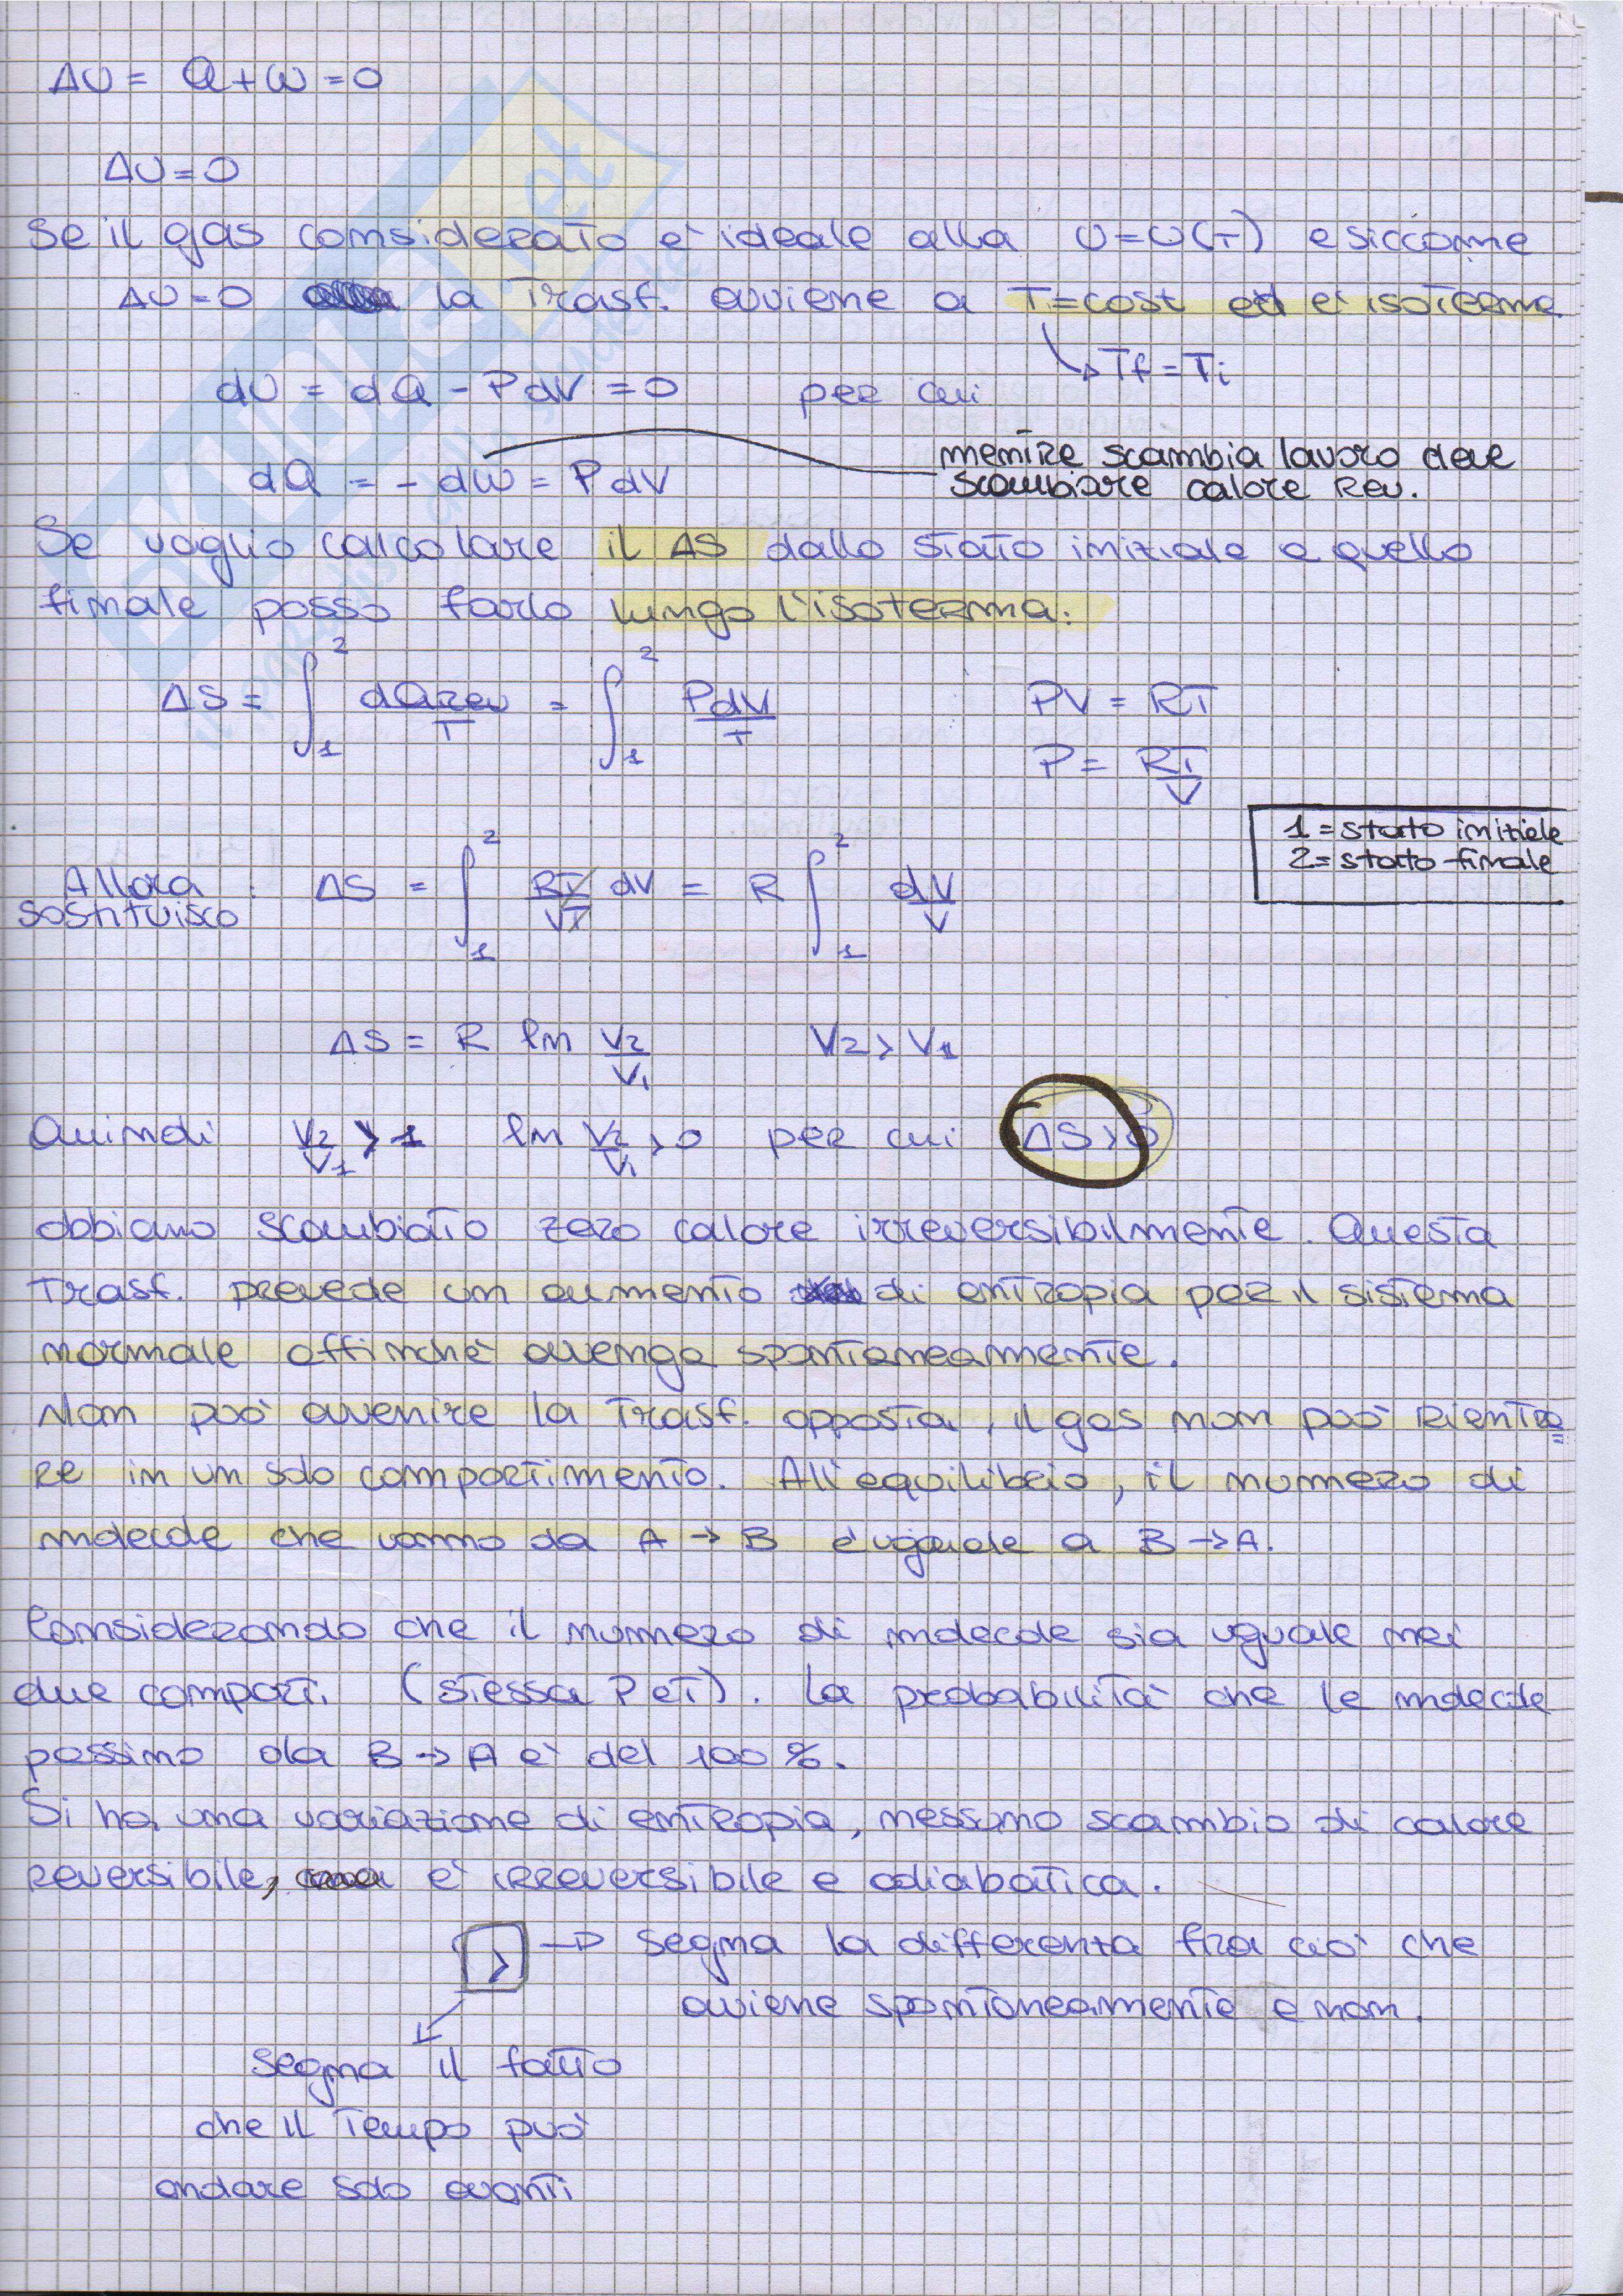 ΔU = Q + W = 0
ΔU = 0
Se il gas considerato è ideale alla U = U(T) e siccome
ΔU = 0 la Trasf. avviene a T = cost ed è isoterma.
→ Tf = Ti
dU = dQ - PdV = 0 per cui
dQ = - dW = PdV
mentre scambia lavoro deve
scambiare calore Rev.
Se voglio calcolare il ΔS dallo stato iniziale a quello
finale posso farlo lungo l'isoterma:
ΔS = ∫₁² dQrev/T = ∫₁² PdV/T PV = RT
P = RT/V
1 = stato iniziale
2 = stato finale
Allora sostituisco : ΔS = ∫₁² RT/VT dV = R ∫₁² dV/V
ΔS = R ln V2/V1 V2 > V1
Quindi V2/V1 > 1 ln V2/V1 > 0 per cui ΔS > 0
abbiamo scambiato zero calore irreversibilmente. Questa
Trasf. prevede un aumento di entropia per il sistema
normale affinchè avvenga spontaneamente.
Non può avvenire la Trasf. opposta, il gas non può Rientra=
re in un solo compartimento. All'equilibrio, il numero di
molecole che vanno da A → B è uguale a B → A.
Considerando che il numero di molecole sia uguale nei
due comparti. (stessa P e T). La probabilità che le molecole
passino da B → A è del 100 %.
Si ha una variazione di entropia, nessuno scambio di calore
reversibile, è irreversibile e adiabatica.
> → segna la differenza fra ciò che
avviene spontaneamente e non.
segna il fatto
che il Tempo può
andare solo avanti